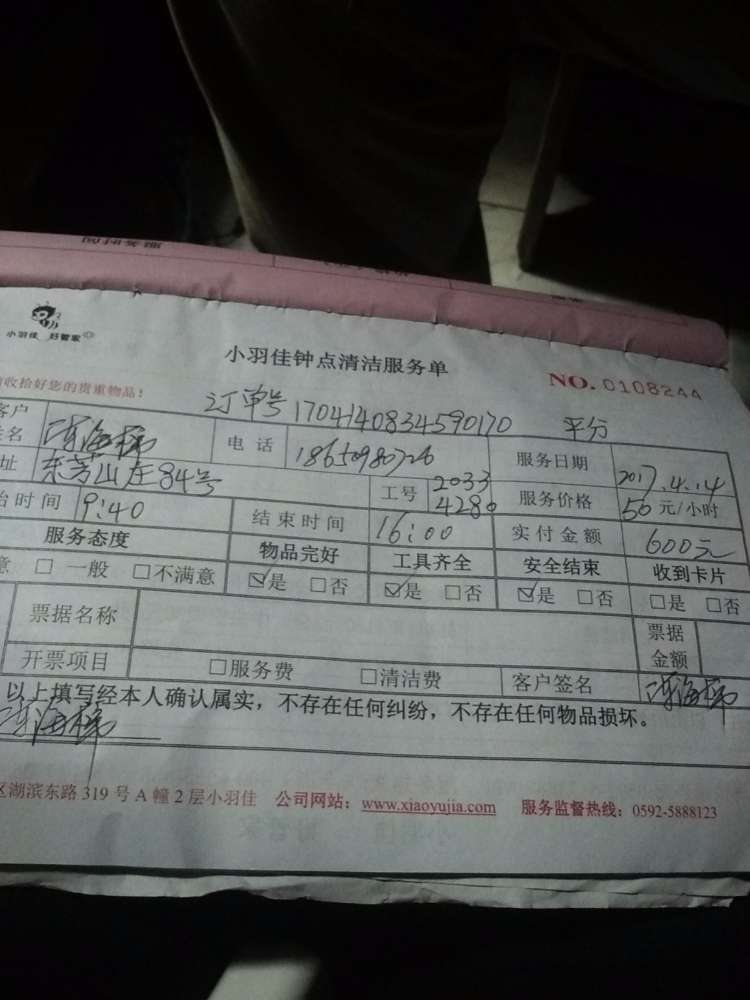 小羽佳 好管家
小羽佳钟点清洁服务单
NO. 0108244
收拾好您的贵重物品!
订单号 1704140834590170 平分
客户
姓名
电话 18650980726 服务日期 2017.4.14
址 东芳山庄84号 工号 2033 4280 服务价格 50 元/小时
始时间 9:40 结束时间 16:00 实付金额 600元
服务态度 物品完好 工具齐全 安全结束 收到卡片
意 □ 一般 □不满意 ☑是 □否 ☑是 □否 ☑是 □否 □是 □否
票据名称 票据
金额
开票项目 □服务费 □清洁费 客户签名
以上填写经本人确认属实，不存在任何纠纷，不存在任何物品损坏。
区湖滨东路 319 号 A 幢 2 层小羽佳 公司网站：www.xiaoyujia.com 服务监督热线：0592-5888123